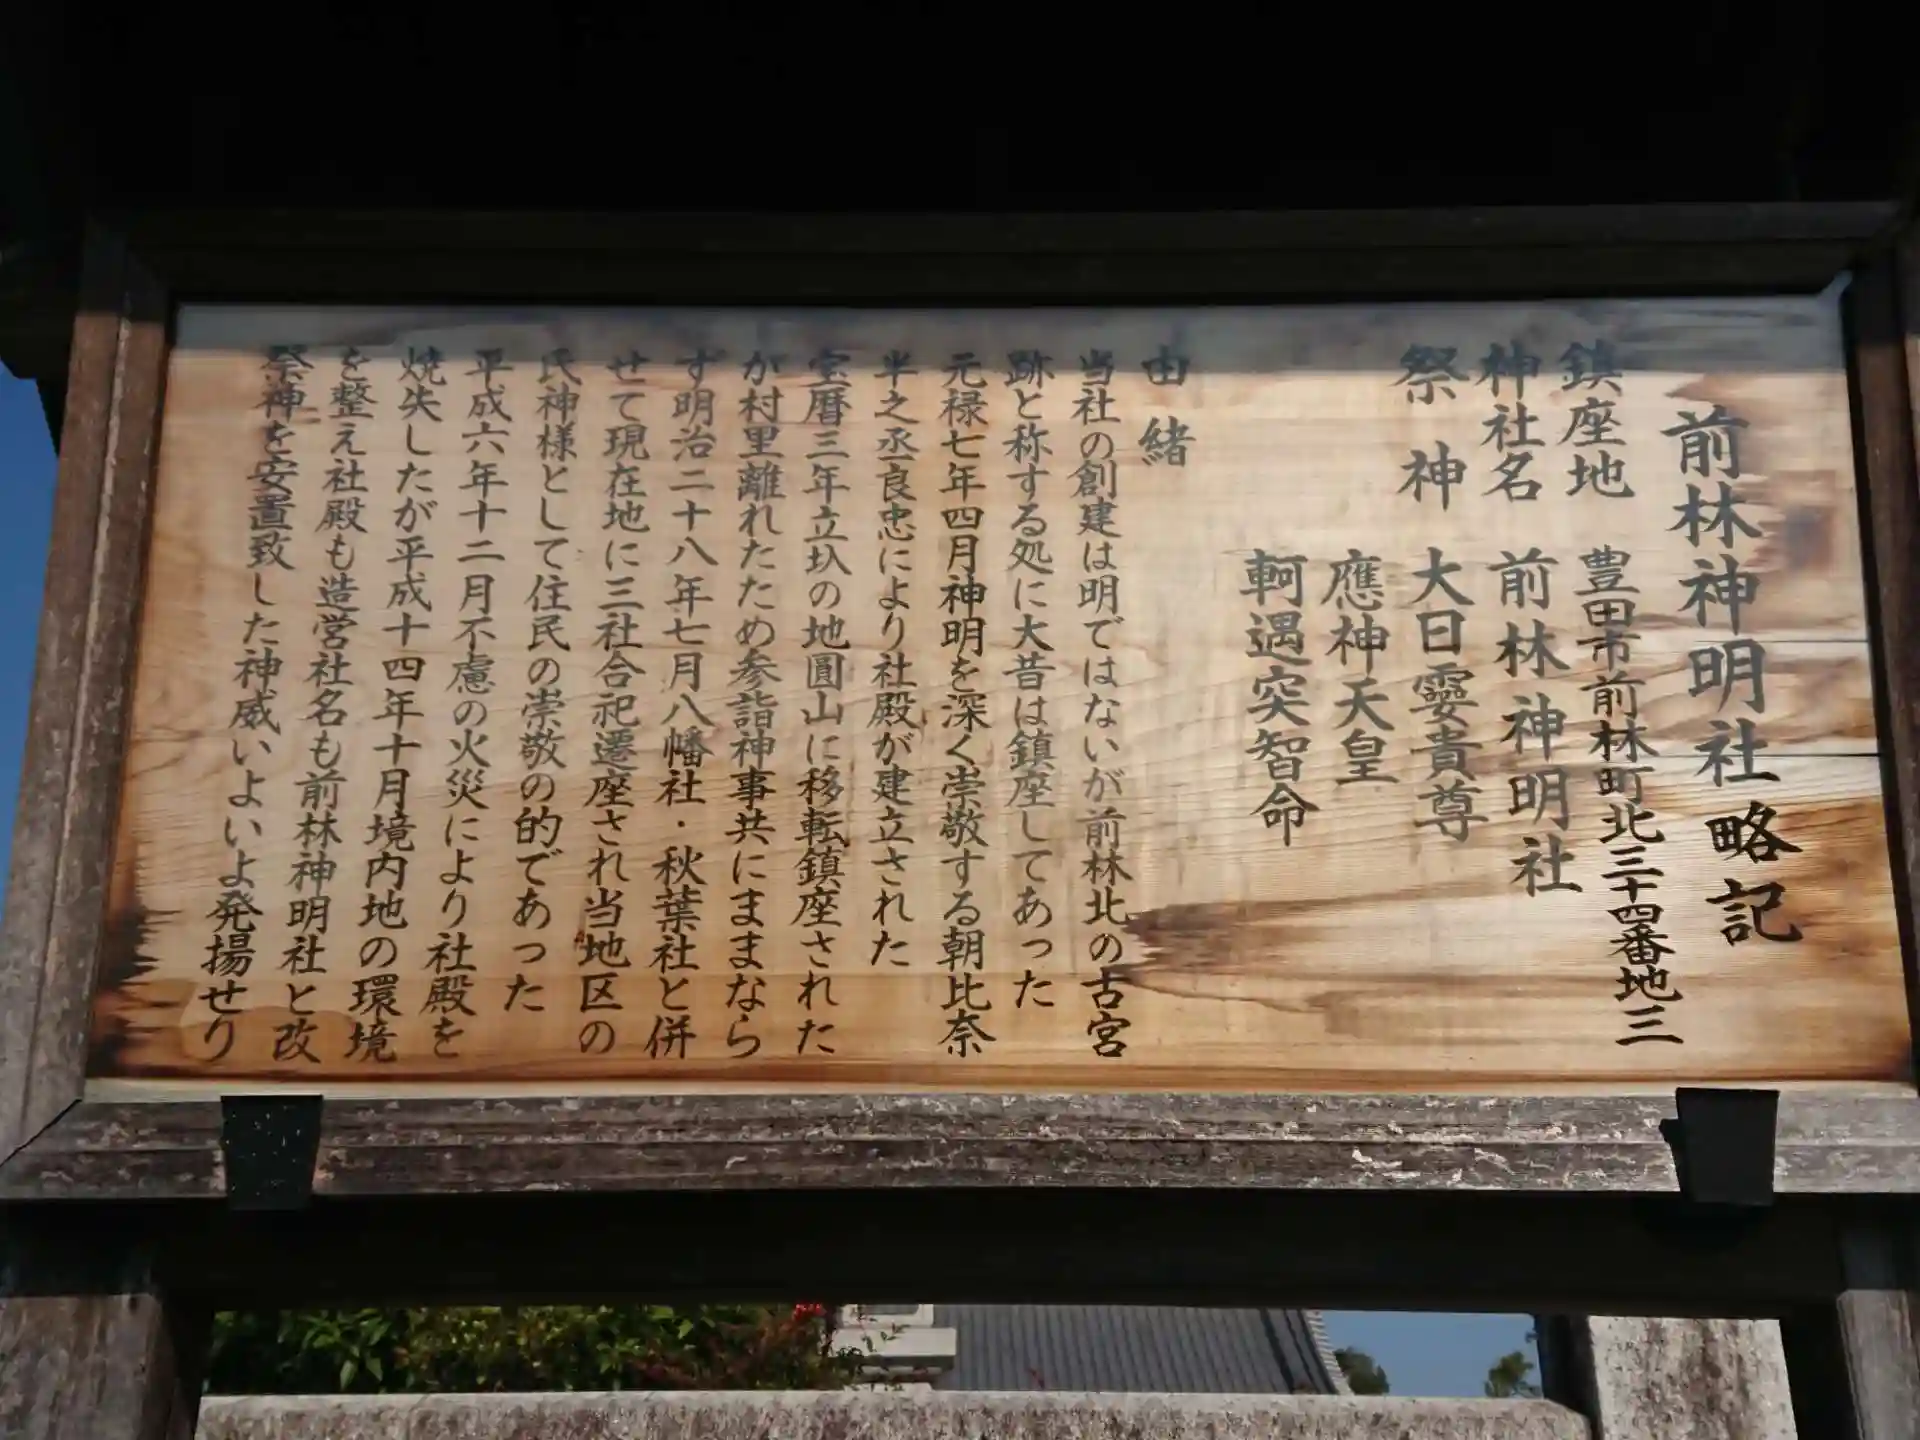 前林神明社略記
鎮座地　豊田市前林町北三十四番地三
神社名　前林神明社
祭　神　大日孁貴尊
應神天皇
軻遇突智命
由　緒
当社の創建は明ではないが前林北の古宮
跡と称する処に大昔は鎮座してあった
元禄七年四月神明を深く崇敬する朝比奈
半之丞良忠により社殿が建立された
宝暦三年立圦の地圓山に移転鎮座された
が村里離れたため参詣神事共にままなら
ず明治二十八年七月八幡社・秋葉社と併
せて現在地に三社合祀遷座され当地区の
氏神様として住民の崇敬の的であった
平成六年十二月不慮の火災により社殿を
焼失したが平成十四年十月境内地の環境
を整え社殿も造営社名も前林神明社と改
祭神を安置致した神威いよいよ発揚せり